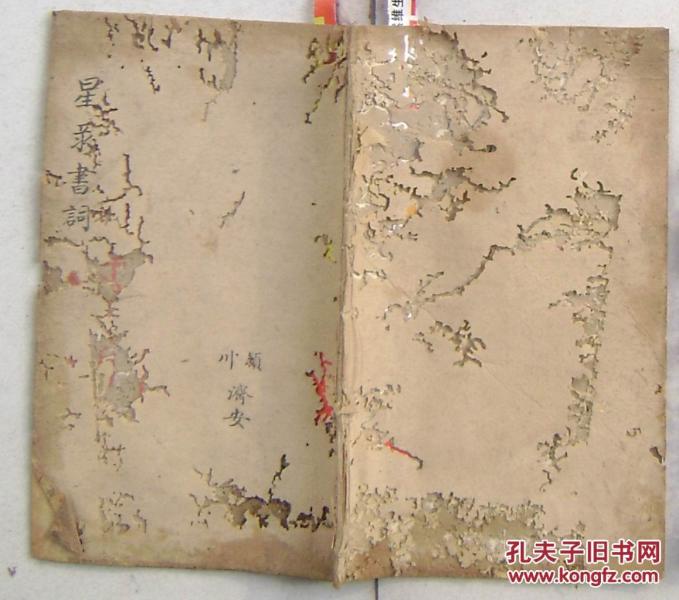 星彔書詞
潁川
濟安
维生
孔夫子旧书网
www.kongfz.com